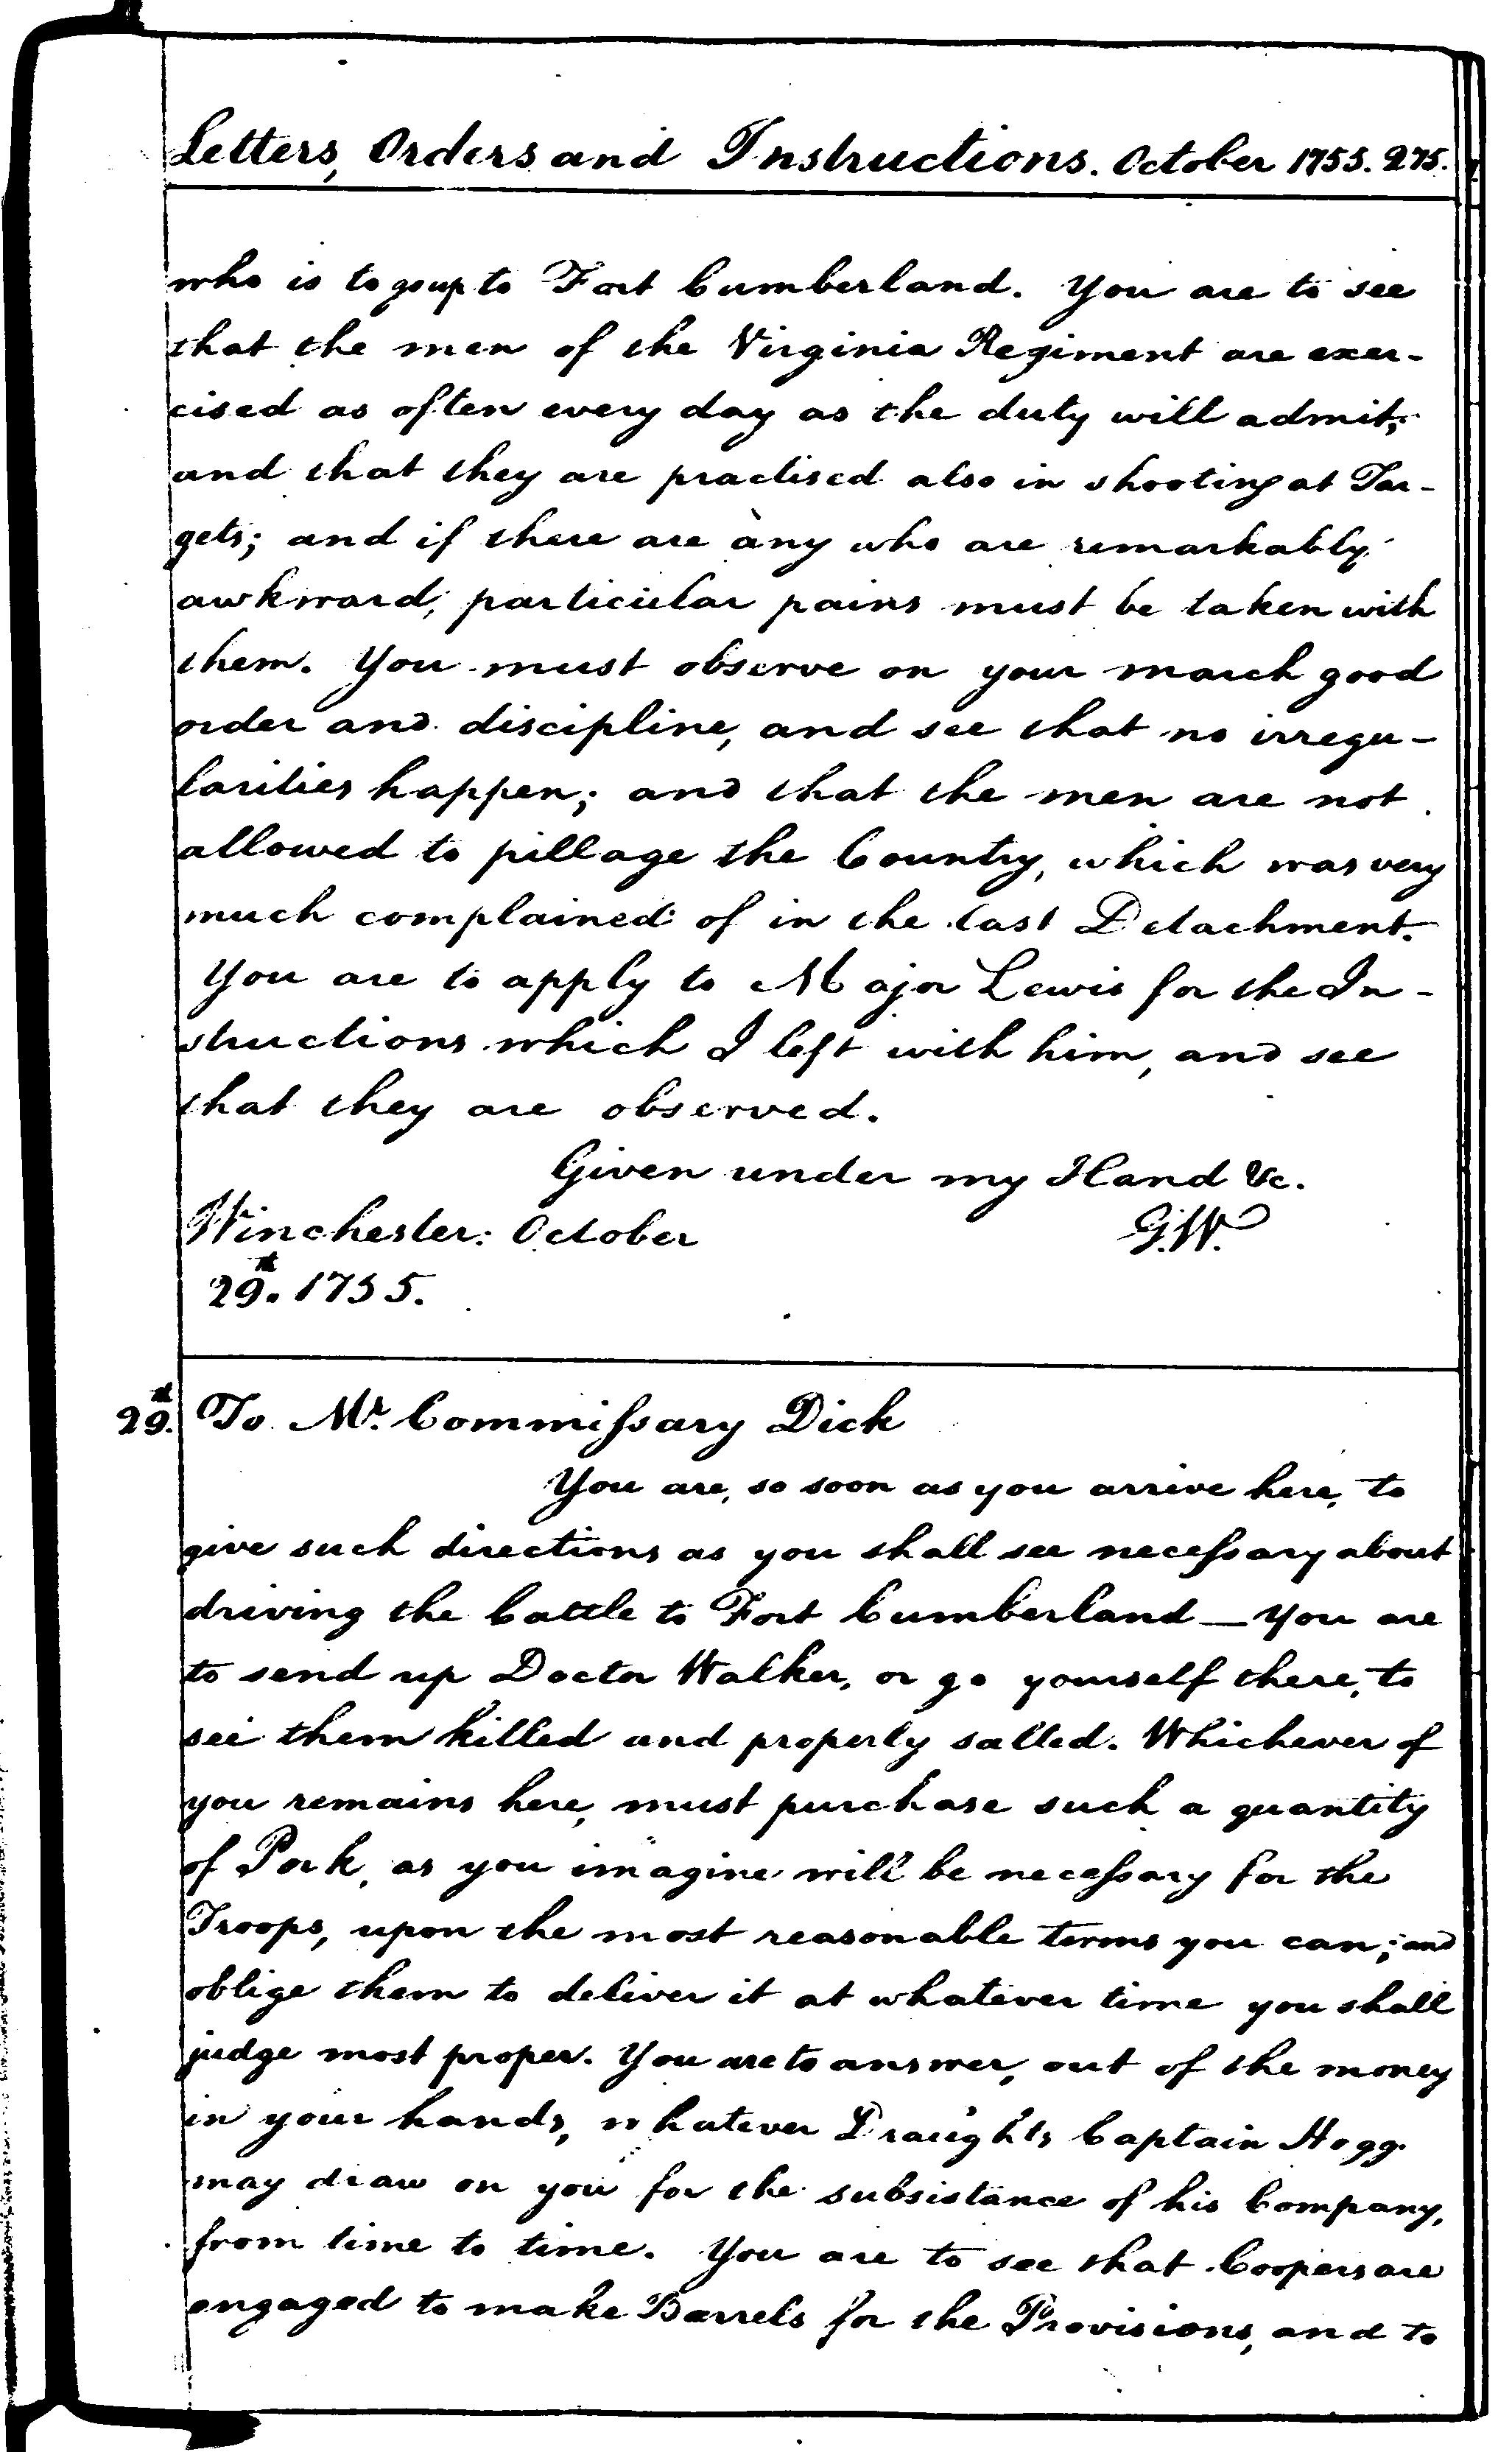 Letters, Orders and Instructions. October 1755. 275.
who is to go up to Fort Cumberland. You are to see
that the men of the Virginia Regiment are exer-
cised as often every day as the duty will admit;
and that they are practised also in shooting at Tar-
gets; and if there are any who are remarkably
awkward, particular pains must be taken with
them. You must observe on your march good
order and discipline, and see that no irregu-
larities happen; and that the men are not
allowed to pillage the Country, which was very
much complained of in the last Detachment.
You are to apply to Major Lewis for the In-
structions which I left with him, and see
that they are observed.
Given under my Hand &c.
Winchester: October
G.W.
29th. 1755.
29th. To Mr. Commissary Dick
You are, so soon as you arrive here, to
give such directions as you shall see necessary about
driving the Cattle to Fort Cumberland — You are
to send up Doctor Walker, or go yourself there, to
see them killed and properly salted. Whichever of
you remains here, must purchase such a quantity
of Pork, as you imagine will be necessary for the
Troops, upon the most reasonable terms you can; and
oblige them to deliver it at whatever time you shall
judge most proper. You are to answer, out of the money
in your hands, whatever Draughts Captain Hogg
may draw on you for the subsistance of his Company,
from time to time. You are to see that Coopers are
engaged to make Barrels for the Provisions, and to